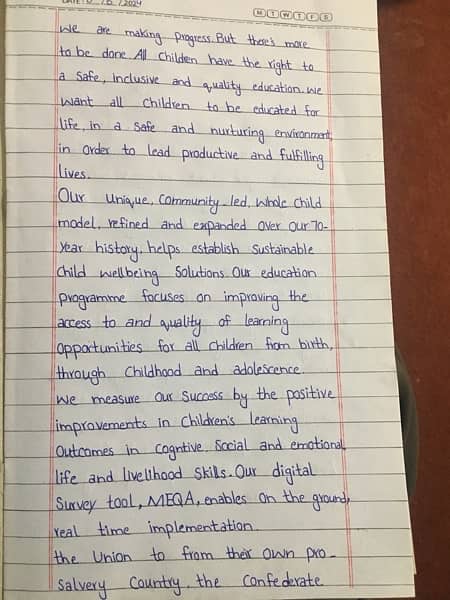 M T W T F S
we are making progress. But there's more
to be done. All Children have the right to
a safe, inclusive and quality education. we
want all children to be educated for
life, in a safe and nurturing environment,
in order to lead productive and fulfilling
lives.
Our unique, community-led, whole child
model, refined and expanded over our 70-
year history, helps establish sustainable
child wellbeing solutions. Our education
programme focuses on improving the
access to and quality of learning
opportunities for all children from birth,
through childhood and adolescence.
we measure our success by the positive
improvements in children's learning
outcomes in cogntive, social and emotional,
life and livelihood skills. Our digital
survey tool, MEQA, enables on the ground,
real time implementation.
the Union to from their own pro-
salvery country, the confederate